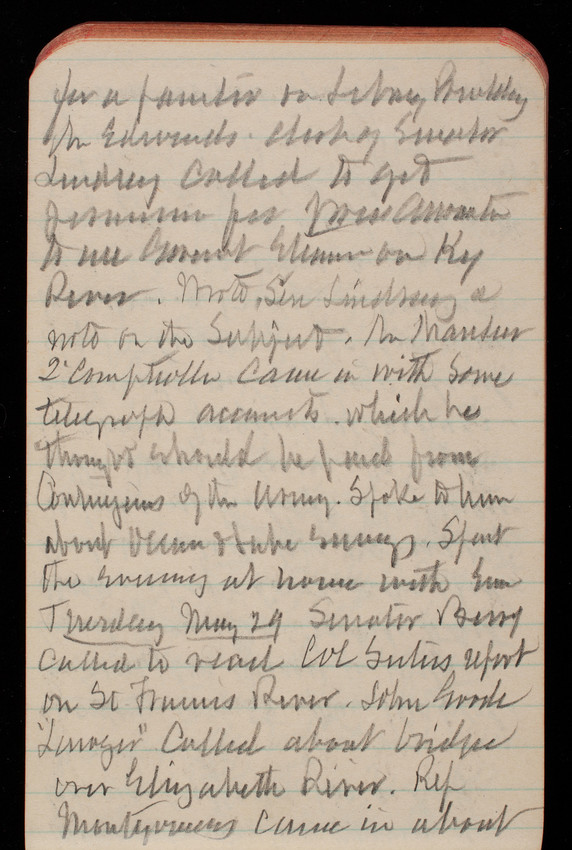 for a position on Library Building
Mr Edwards clerk of Senator
Lindsey called to get
permission for
to use Govmt Steamer on Ky
River. Wrote Sen Lindsey a
note on the Subject. Mr Mansur
2d Comptroller came in with some
telegraph accounts. which he
thought should be paid from
Contingencies of the Army. Spoke to him
about Ocean & Lake Surveys. Spent
the evening at home with
Tuesday May 29 Senator Berry
called to read Col Suters report
on St Francis River. John Goode
"Lawyer" Called about bridge
over Elizabeth River. Rep
Montgomery came in about